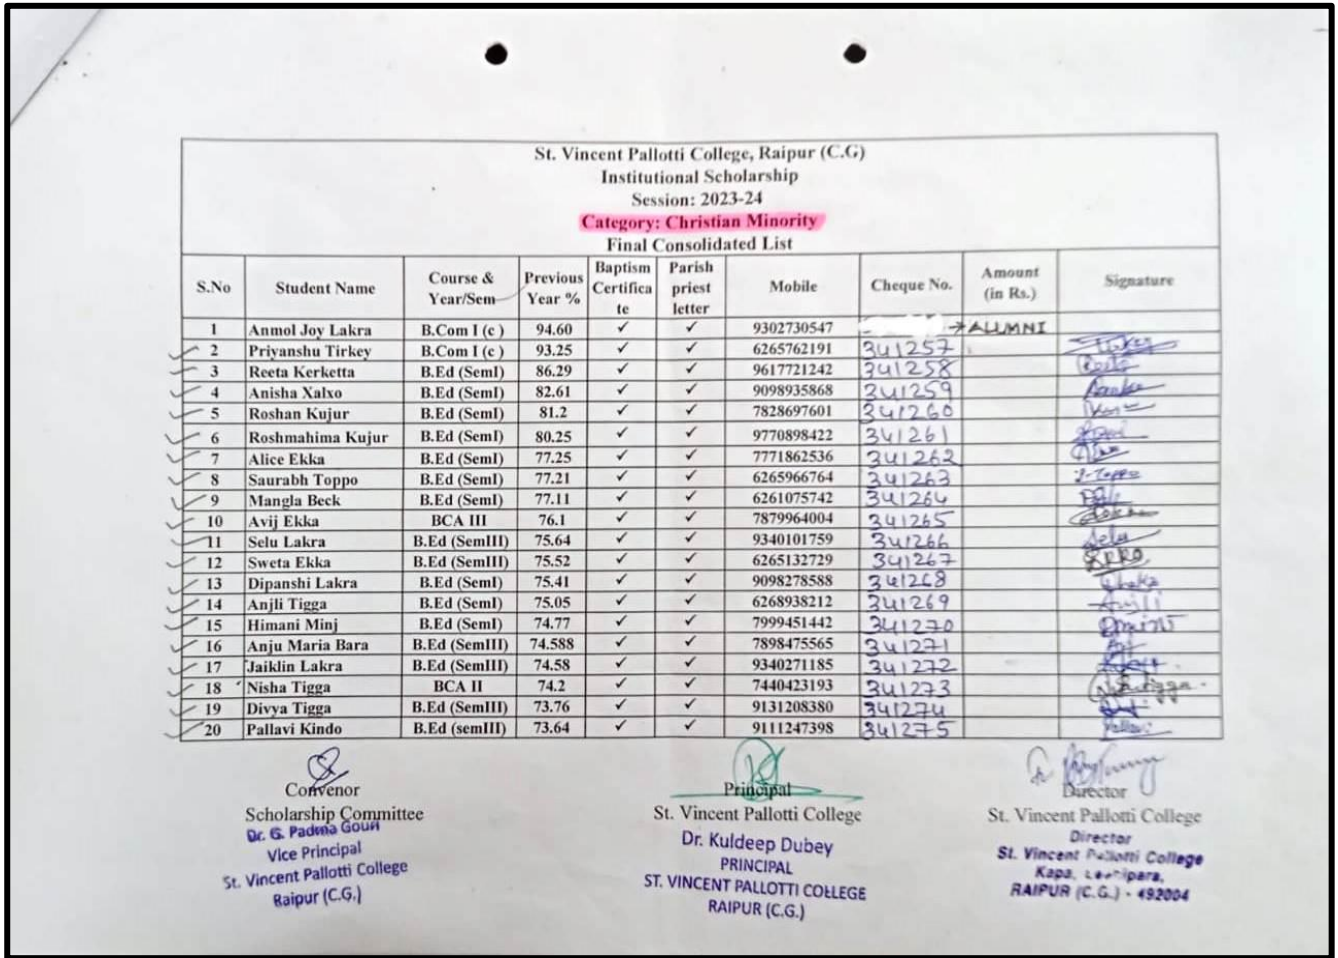 St. Vincent Pallotti College, Raipur (C.G)
Institutional Scholarship
Session: 2023-24
Category: Christian Minority
Final Consolidated List
S.No Student Name Course & Year/Sem Previous Year % Baptism Certificate Parish priest letter Mobile Cheque No. Amount (in Rs.) Signature
1 Anmol Joy Lakra B.Com I (c ) 94.60 ✓ ✓ 9302730547 →ALUMNI
✓ 2 Priyanshu Tirkey B.Com I (c ) 93.25 ✓ ✓ 6265762191 341257
✓ 3 Reeta Kerketta B.Ed (SemI) 86.29 ✓ ✓ 9617721242 341258
✓ 4 Anisha Xalxo B.Ed (SemI) 82.61 ✓ ✓ 9098935868 341259
✓ 5 Roshan Kujur B.Ed (SemI) 81.2 ✓ ✓ 7828697601 341260
✓ 6 Roshmahima Kujur B.Ed (SemI) 80.25 ✓ ✓ 9770898422 341261
✓ 7 Alice Ekka B.Ed (SemI) 77.25 ✓ ✓ 7771862536 341262
✓ 8 Saurabh Toppo B.Ed (SemI) 77.21 ✓ ✓ 6265966764 341263
✓ 9 Mangla Beck B.Ed (SemI) 77.11 ✓ ✓ 6261075742 341264
✓ 10 Avij Ekka BCA III 76.1 ✓ ✓ 7879964004 341265
✓ 11 Selu Lakra B.Ed (SemIII) 75.64 ✓ ✓ 9340101759 341266 Selu
✓ 12 Sweta Ekka B.Ed (SemIII) 75.52 ✓ ✓ 6265132729 341267
✓ 13 Dipanshi Lakra B.Ed (SemI) 75.41 ✓ ✓ 9098278588 341268
✓ 14 Anjli Tigga B.Ed (SemI) 75.05 ✓ ✓ 6268938212 341269 Anjli
✓ 15 Himani Minj B.Ed (SemI) 74.77 ✓ ✓ 7999451442 341270
✓ 16 Anju Maria Bara B.Ed (SemIII) 74.588 ✓ ✓ 7898475565 341271
✓ 17 Jaiklin Lakra B.Ed (SemIII) 74.58 ✓ ✓ 9340271185 341272
✓ 18 Nisha Tigga BCA II 74.2 ✓ ✓ 7440423193 341273
✓ 19 Divya Tigga B.Ed (semIII) 73.76 ✓ ✓ 9131208380 341274
✓ 20 Pallavi Kindo B.Ed (semIII) 73.64 ✓ ✓ 9111247398 341275 Pallavi
Convenor
Scholarship Committee
Dr. G. Padma Gouri
Vice Principal
St. Vincent Pallotti College
Raipur (C.G.)
Principal
St. Vincent Pallotti College
Dr. Kuldeep Dubey
PRINCIPAL
ST. VINCENT PALLOTTI COLLEGE
RAIPUR (C.G.)
Director
St. Vincent Pallotti College
Director
St. Vincent Pallotti College
Kapa,
RAIPUR (C.G.) - 492004